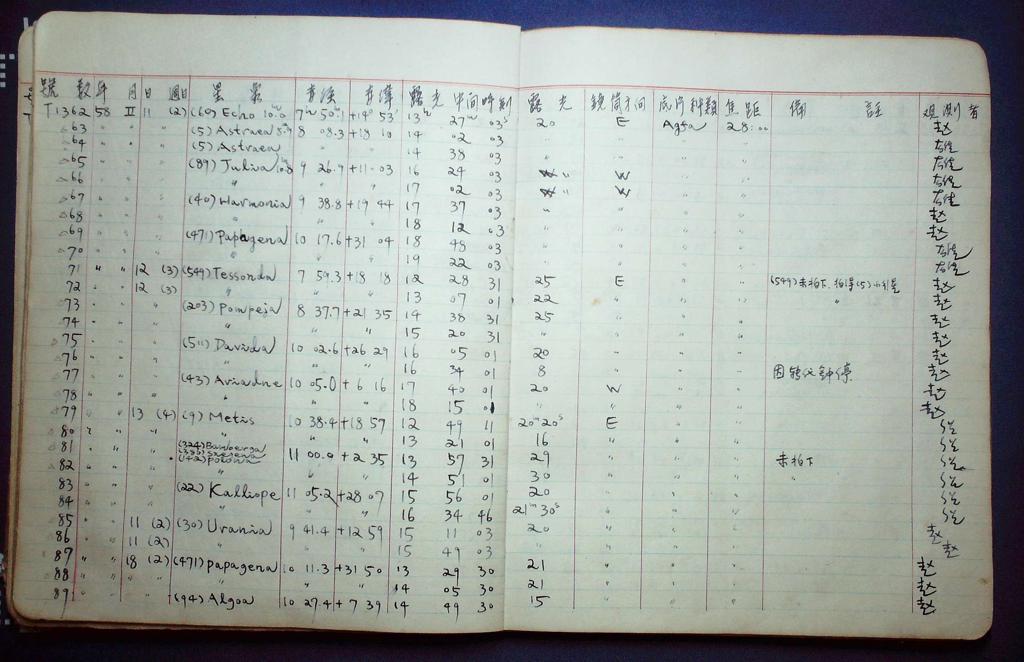 號數 年 月 日 週日 星象 赤經 赤緯 露光中间時刻 露光 鏡筒方向 底片种類 焦距 備註 观测者
T1362 58 II 11 (2) (60) Echo 7 50.1 +19 53 13 27 03 20 E Agfa 28:00 赵
63 " " " (5) Astraea 8 08.3 +18 10 14 02 03 " " " "
64 " " " (5) Astraea 14 38 03 " " " "
65 " " " (89) Julia 9 26.9 +11 03 16 24 03 " W " "
66 " " " " 17 02 03 " W " "
67 " " " (40) Harmonia 9 38.8 +19 44 17 37 03 " " " " 赵
68 " " " " 18 12 03 " " " " 赵
69 " " " (471) Papagena 10 17.6 +31 04 18 48 03 " " " "
70 " " " " 19 22 03 " " " "
71 " " 12 (3) (549) Tessonda 7 59.3 +18 18 12 28 31 25 E " " (549)未拍下, 拍得(5)小行星 赵
72 12 (3) " 13 07 01 22 " " " " 赵
73 " " " (203) Pompeja 8 37.7 +21 35 14 38 31 25 " " " 赵
74 " " " " 15 20 31 " " " 赵
75 " " " (511) Davida 10 02.6 +26 29 16 05 01 20 " " " 赵
76 " " " " 16 34 01 8 " " " 赵
77 " " " (43) Ariadne 10 05.0 +6 16 17 40 01 20 W " " 赵
78 " " " " 18 15 01 " " " " 赵
79 " " 13 (4) (9) Metis 10 38.4 +18 57 12 49 11 20m20s E " "
80 " " " " 13 21 01 16 " " "
81 " " " (324) Bamberga (142) Polona 11 00.0 +2 35 13 57 31 29 " " " 未拍下
82 " " " 14 51 01 30 " " " "
83 " " " (22) Kalliope 11 05.2 +28 07 15 56 01 20 " " "
84 " " " " 16 34 46 21m30s " " "
85 11 (2) (30) Urania 9 41.4 +12 59 15 11 03 20 " " " 赵
86 11 (2) " 15 49 03 " " " " 赵
87 " " 18 (2) (471) Papagena 10 11.3 +31 50 13 29 30 21 " " " 赵
88 " " " " 14 05 30 21 " " " 赵
89 " " " (94) Algoa 10 27.4 +7 39 14 49 30 15 " " " 赵